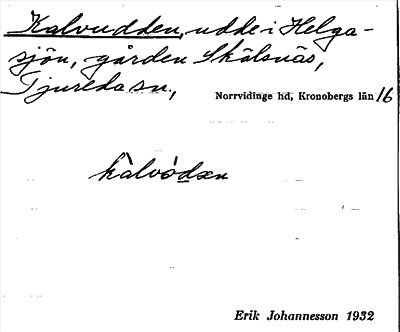 Kalvudden, udde i Helga-
sjön, gården Skälsnäs,
Tjureda sn.,
Norrvidinge hd, Kronobergs län 16
kàlvódæn
Erik Johannesson 1932